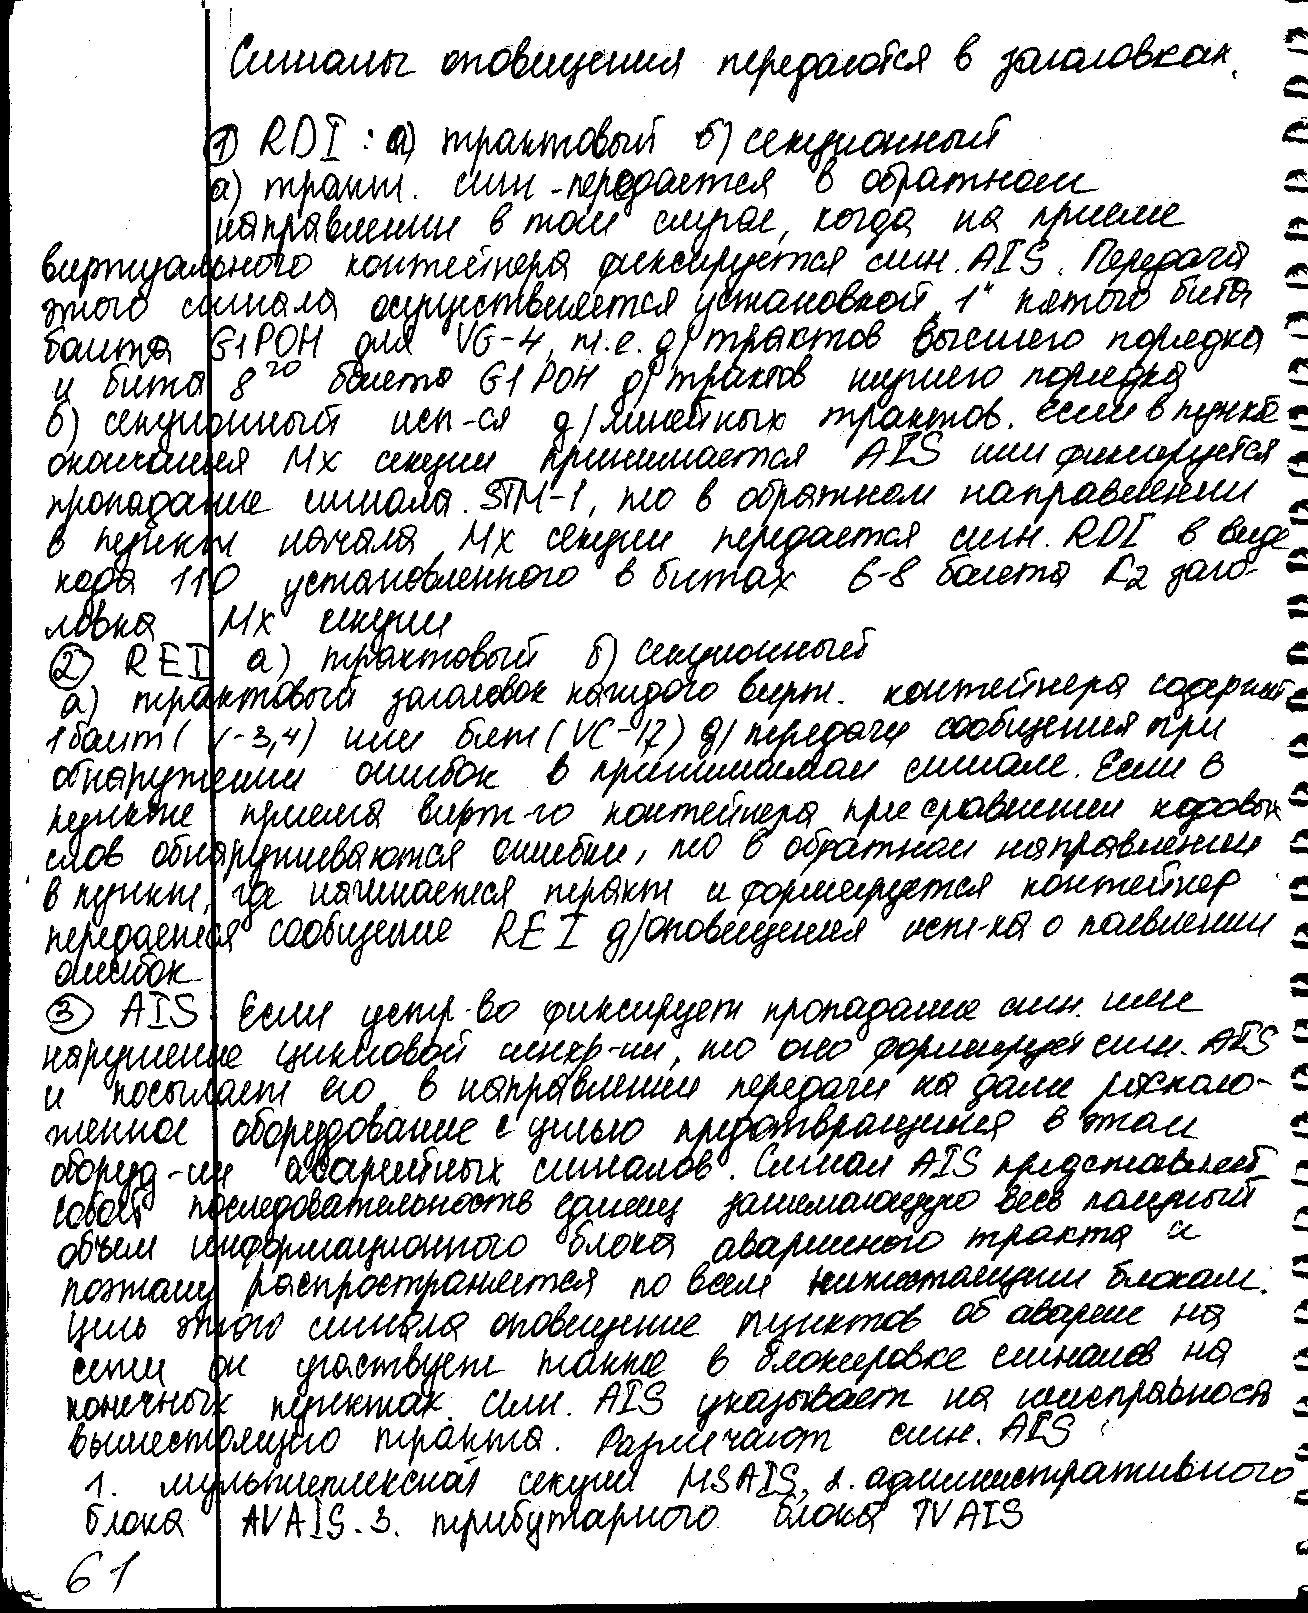 Сигналы оповещения передаются в заголовках.
1) RDI : а) трактовый б) секционный
а) тракт. сигн - передается в обратном
направлении в том случае, когда на приеме
виртуального контейнера фиксируется сигн. AIS. Передача
этого сигнала осуществляется установкой „1" пятого бита
байта G1 POH для VG-4, т.е. д/трактов высшего порядка
и бита 8го байта G1 POH д/трактов низшего порядка
б) секционный исп-ся д/линейных трактов. Если в пункте
окончания Мх секции принимается AIS или фиксируется
пропадание сигнала STM-1, то в обратном направлении
в пункт начала Мх секции передается сигн. RDI в виде
кода 110 установленного в битах 6-8 байта K2 заго-
ловка Мх секции
2) REI а) трактовый б) секционный
а) трактовый заголовок каждого вирт. контейнера содержит
1 байт (V-3,4) или бит (VC-12) д/передачи сообщения при
обнаружении ошибок в принимаемом сигнале. Если в
пункте приема вирт-го контейнера при сравнении кодовых
слов обнаруживаются ошибки, то в обратном направлении
в пункт, где начинается тракт и формируется контейнер
передается сообщение REI д/оповещения ист-ка о появлении
ошибок
3) AIS Если устр-во фиксирует пропадание сигн. или
нарушение цикловой синхр-ии, то оно формирует сигн. AIS
и посылает его в направлении передачи на далее располо-
женное оборудование с целью предотвращения в этом
оборуд-ии аварийных сигналов. Сигнал AIS представляет
собой последовательность единиц занимающую весь полезный
объем информационного блока аварийного тракта и
поэтому распространяется по всем нижестоящим блокам.
Цель этого сигнала оповещение пунктов об аварии на
сети он участвует также в блокировке сигналов на
конечных пунктах. Сигн. AIS указывает на неисправность
вышестоящего тракта. Различают сигн. AIS :
1. мультиплексной секции MSAIS, 2. административного
блока AVAIS. 3. трибутарного блока TVAIS
61